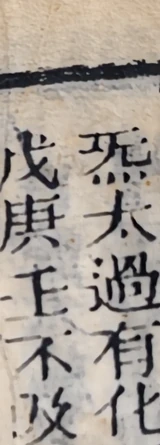 炁太過有化
戊庚壬不及